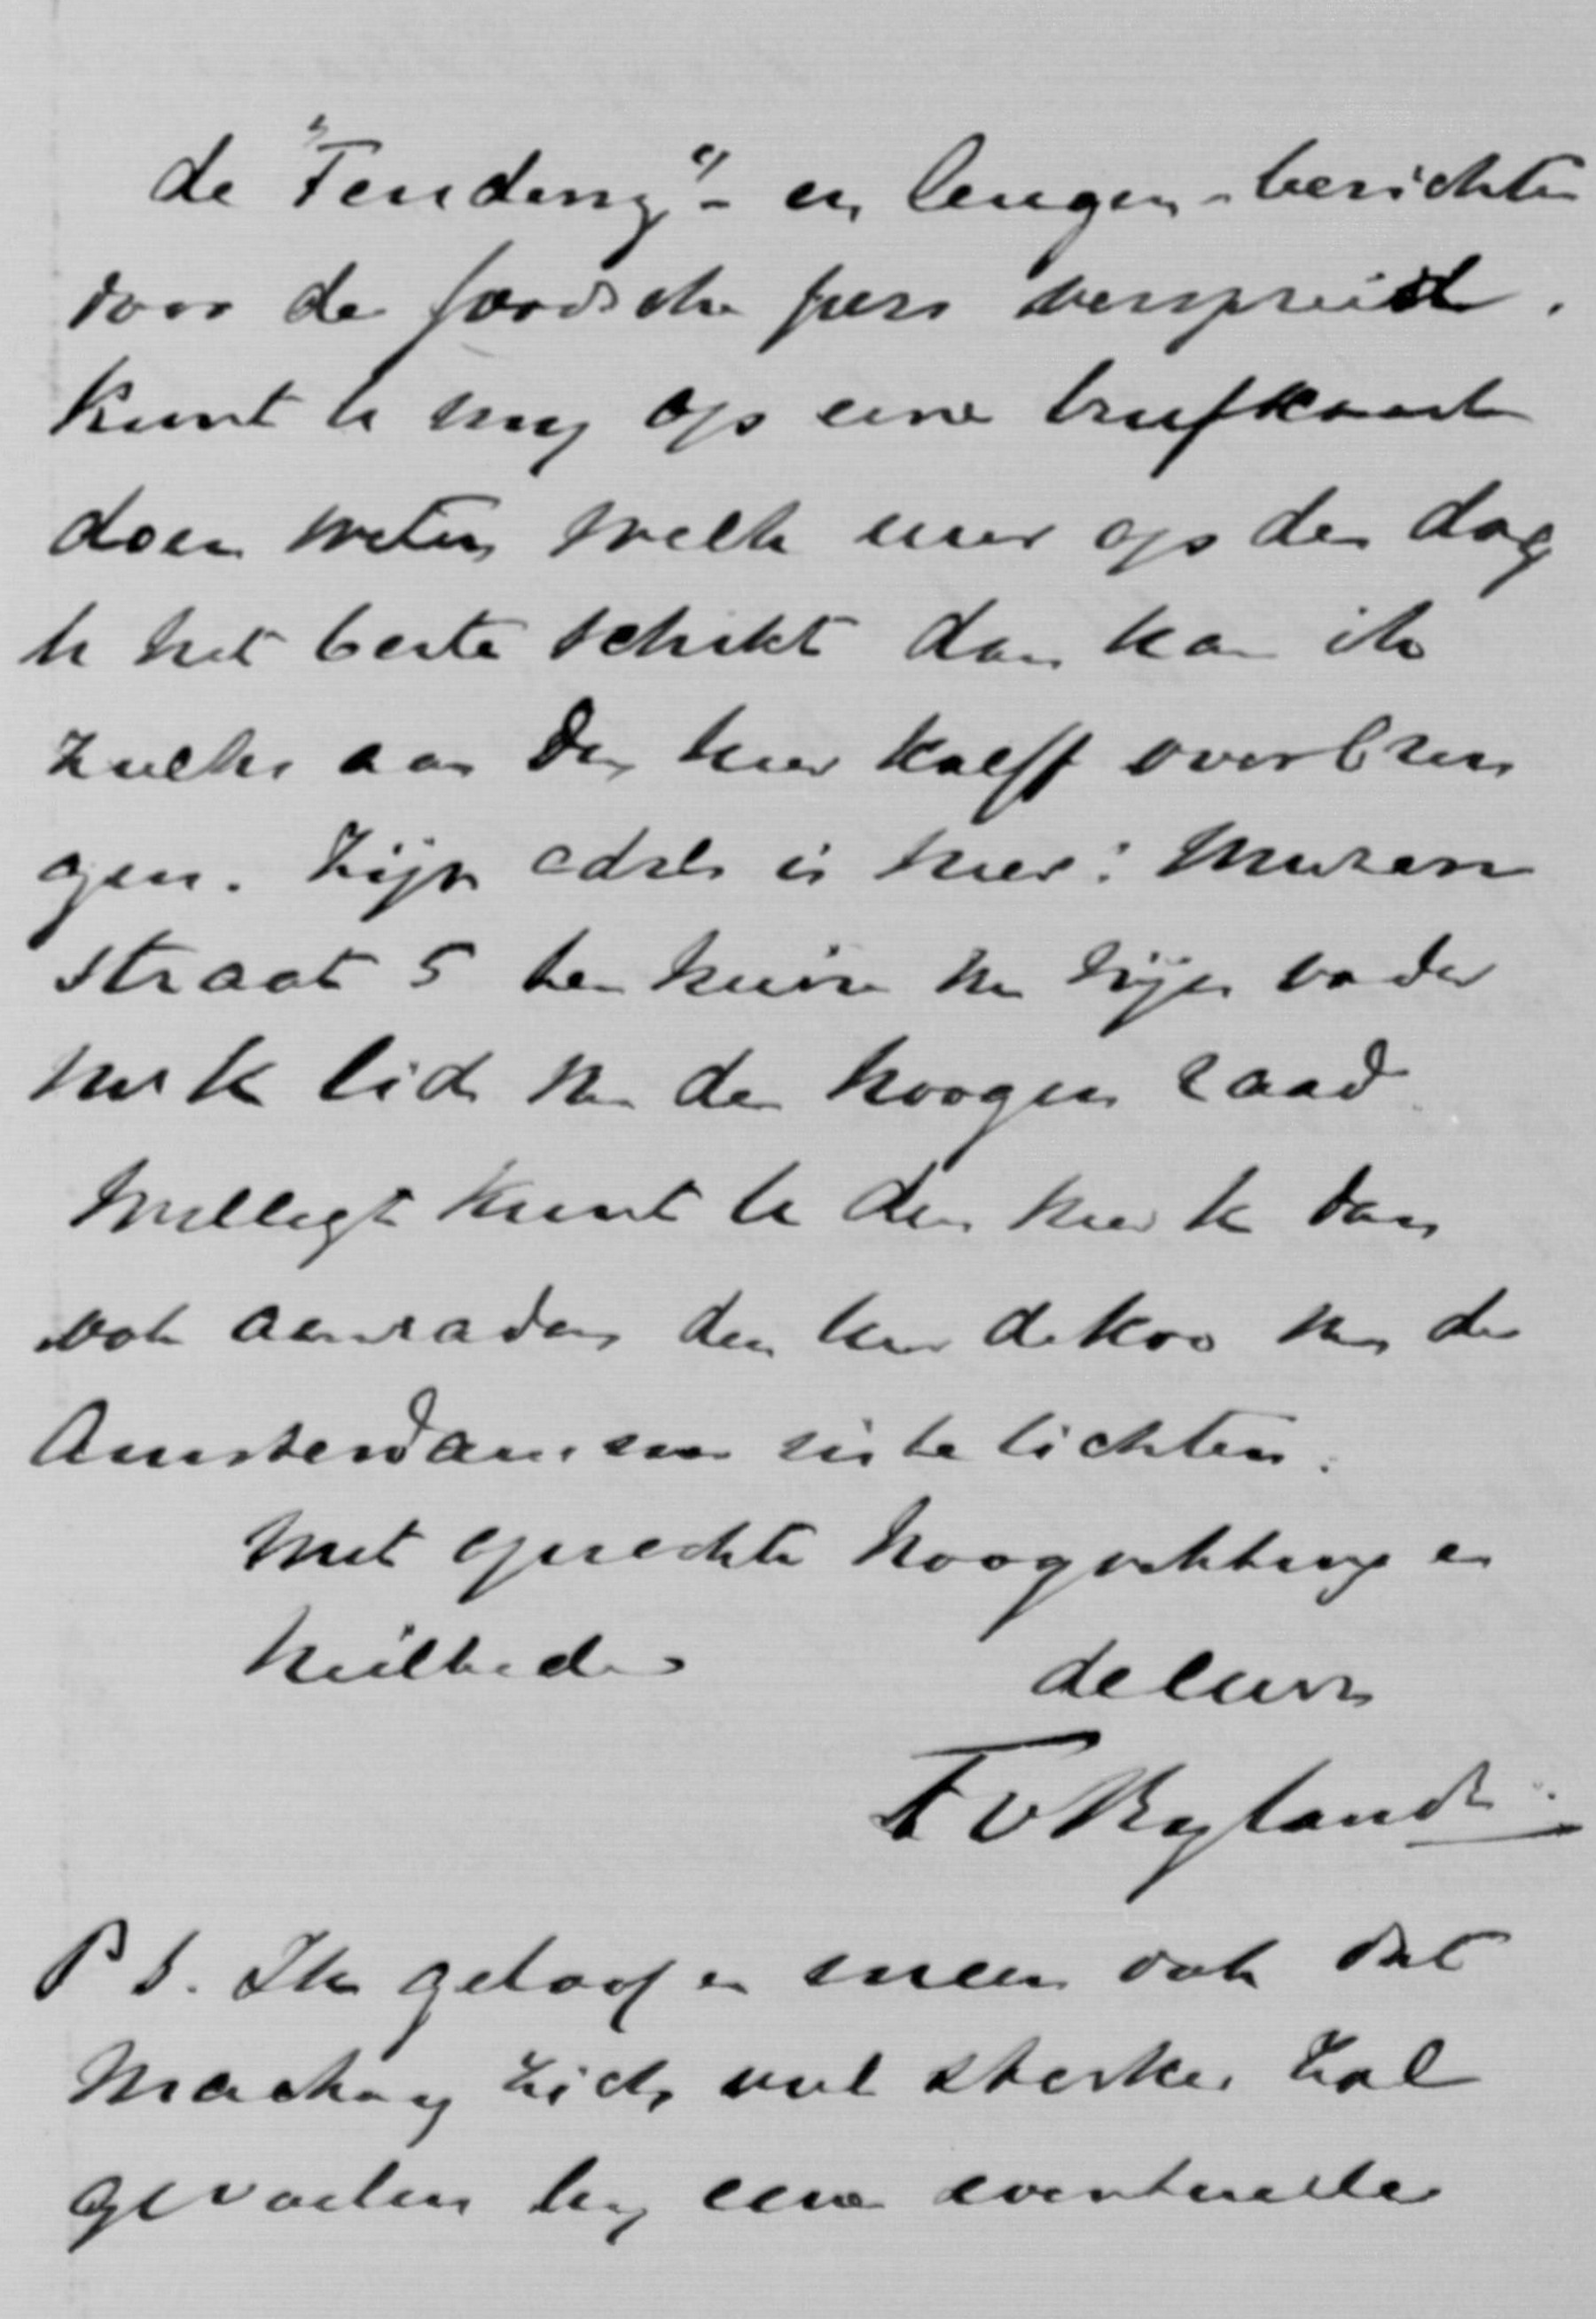 de "Tendenz"- en leugen-berichten
door de joodsche pers verspreid.
Kunt U my op eene briefkaart
doen weten welk uur op den dag
U het beste schikt dan kan ik
zulks aan den heer Kalff overbren
gen. Zijn adres is hier: Muzen
straat 5 ten huize van zijn vader
lid van den hoogen raad
Wellegt kunt U den heer K dan
ook aanraden den heer de Koo van de
Amsterdammer in te lichten.
Met oprechte hoogachting en
heilbede de Uwe
F v Bylandt
P S. Ik geloof en meen ook dat
Mackay zich veel sterker zal
gevoelen by eene eventueele